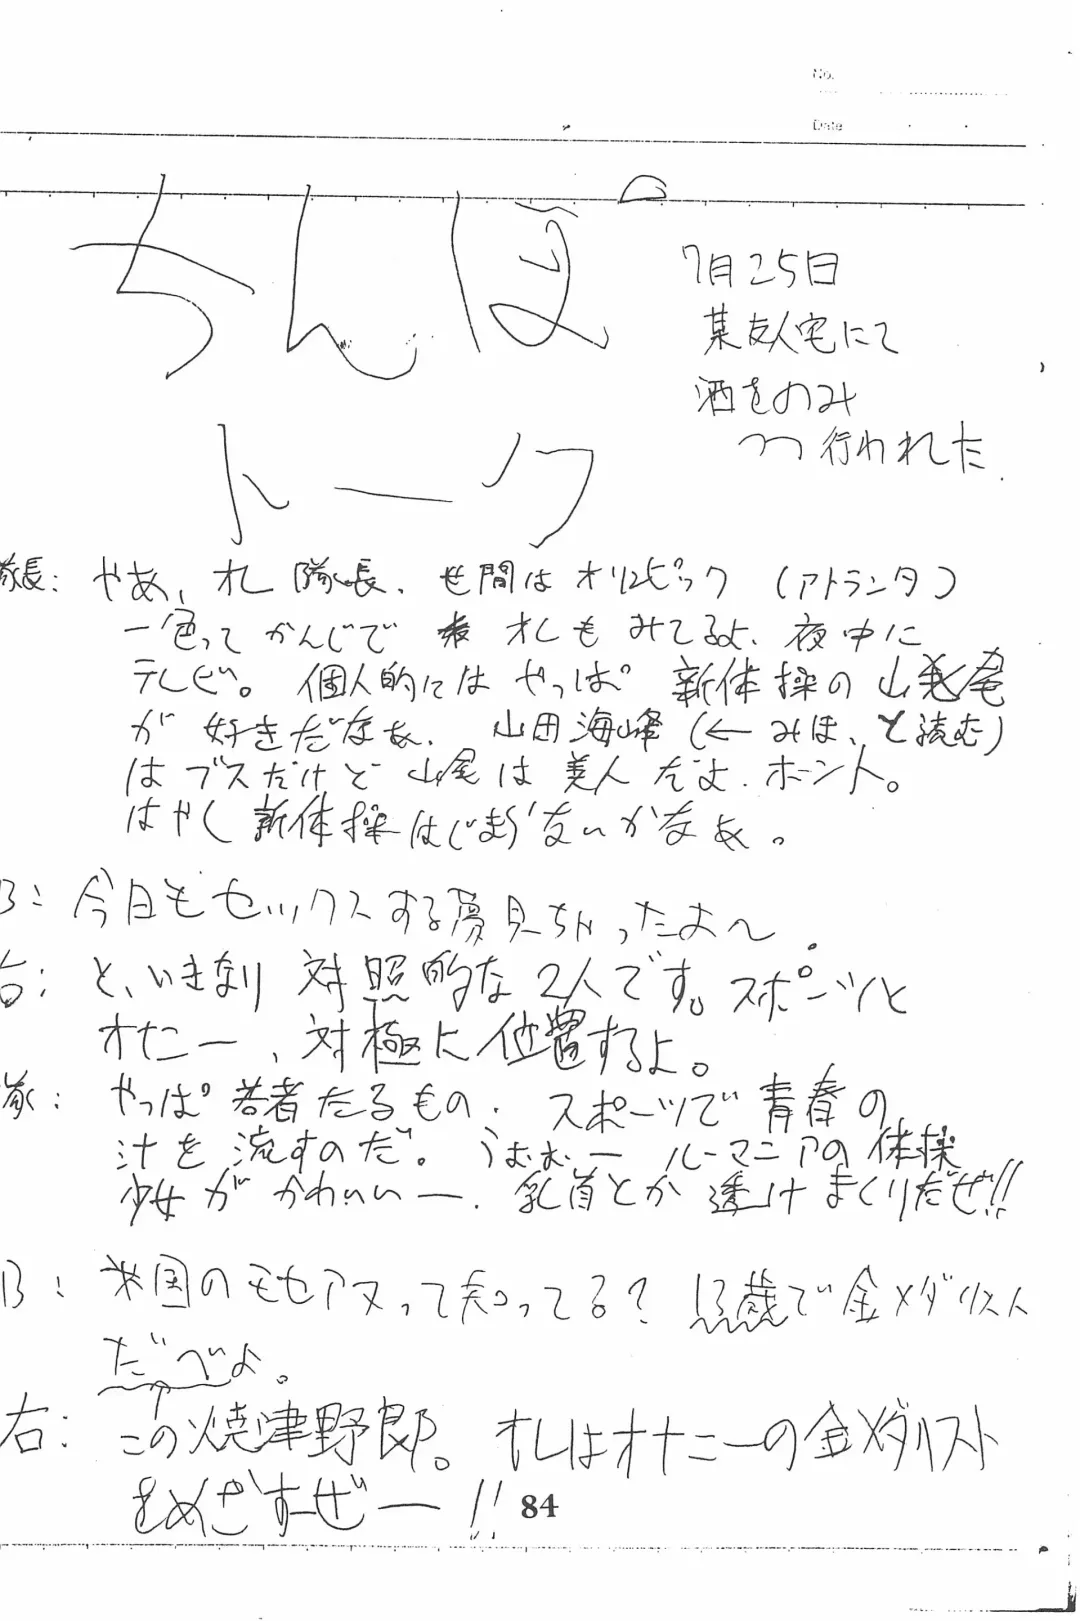 No.
Date
ちんぽ
トーク
7月25日
某友人宅にて
酒をのみ
つつ行われた
隊長：やあ、オレ隊長。世間はオリンピック（アトランタ）
一色ってかんじで オレもみてるよ、夜中に
テレビ。個人的にはやっぱ新体操の山尾
が好きだなぁ。山田海峰（←みほ、と読む）
はブスだけど山尾は美人だよ。ホント。
はやく新体操はじまらないかなぁ。
B：今日もセックスする夢見ちゃったよ〜
右：と、いきなり対照的な2人です。スポーツと
オナニー、対極に位置するよ。
隊：やっぱ若者たるもの、スポーツで青春の
汁を流すのだ。うおおー
B：米国のモセアヌって知ってる？13歳で金メダリスト
だべよ。
右：この焼津野郎。オレはオナニーの金メダリスト
をめざすぜー!!
84